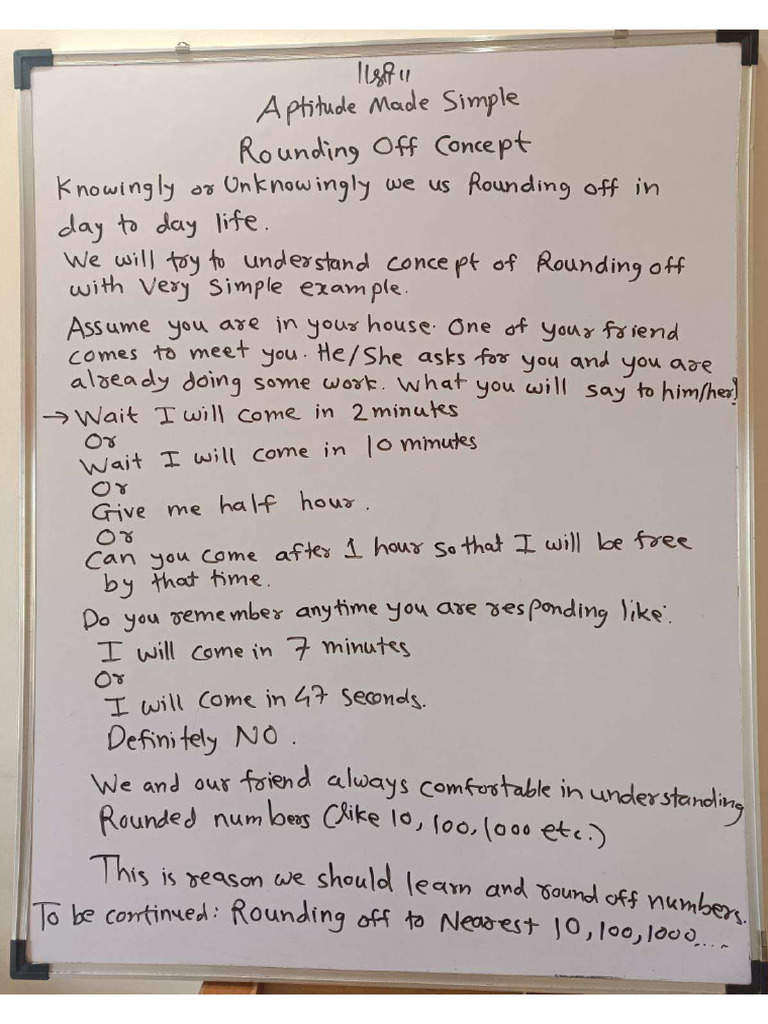 ॥श्री॥
Aptitude Made Simple
Rounding Off Concept
Knowingly or Unknowingly we us Rounding off in
day to day life.
We will try to understand concept of Rounding off
with Very Simple example.
Assume you are in your house. One of your friend
comes to meet you. He/She asks for you and you are
already doing some work. What you will say to him/her?
→ Wait I will come in 2 minutes
Or
Wait I will come in 10 minutes
Or
Give me half hour.
Or
Can you come after 1 hour so that I will be free
by that time.
Do you remember anytime you are responding like:
I will come in 7 minutes
Or
I will come in 47 seconds.
Definitely NO.
We and our friend always comfortable in understanding
Rounded numbers (like 10, 100, 1000 etc.)
This is reason we should learn and round off numbers.
To be continued: Rounding off to Nearest 10, 100, 1000....